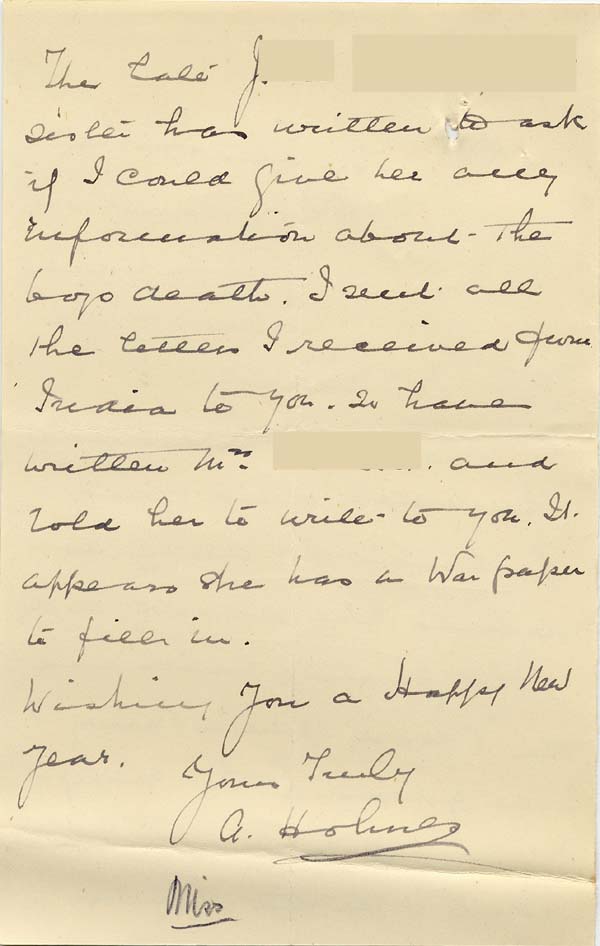 The late J.
sister has written to ask
if I could give her any
information about the
boys death. I sent all
the letters I received from
India to you. So have
written Mrs. and
told her to write to you. It
appears she has a War paper
to fill in.
Wishing you a Happy New
Year.
Yours Truly
A. Holmes
Miss